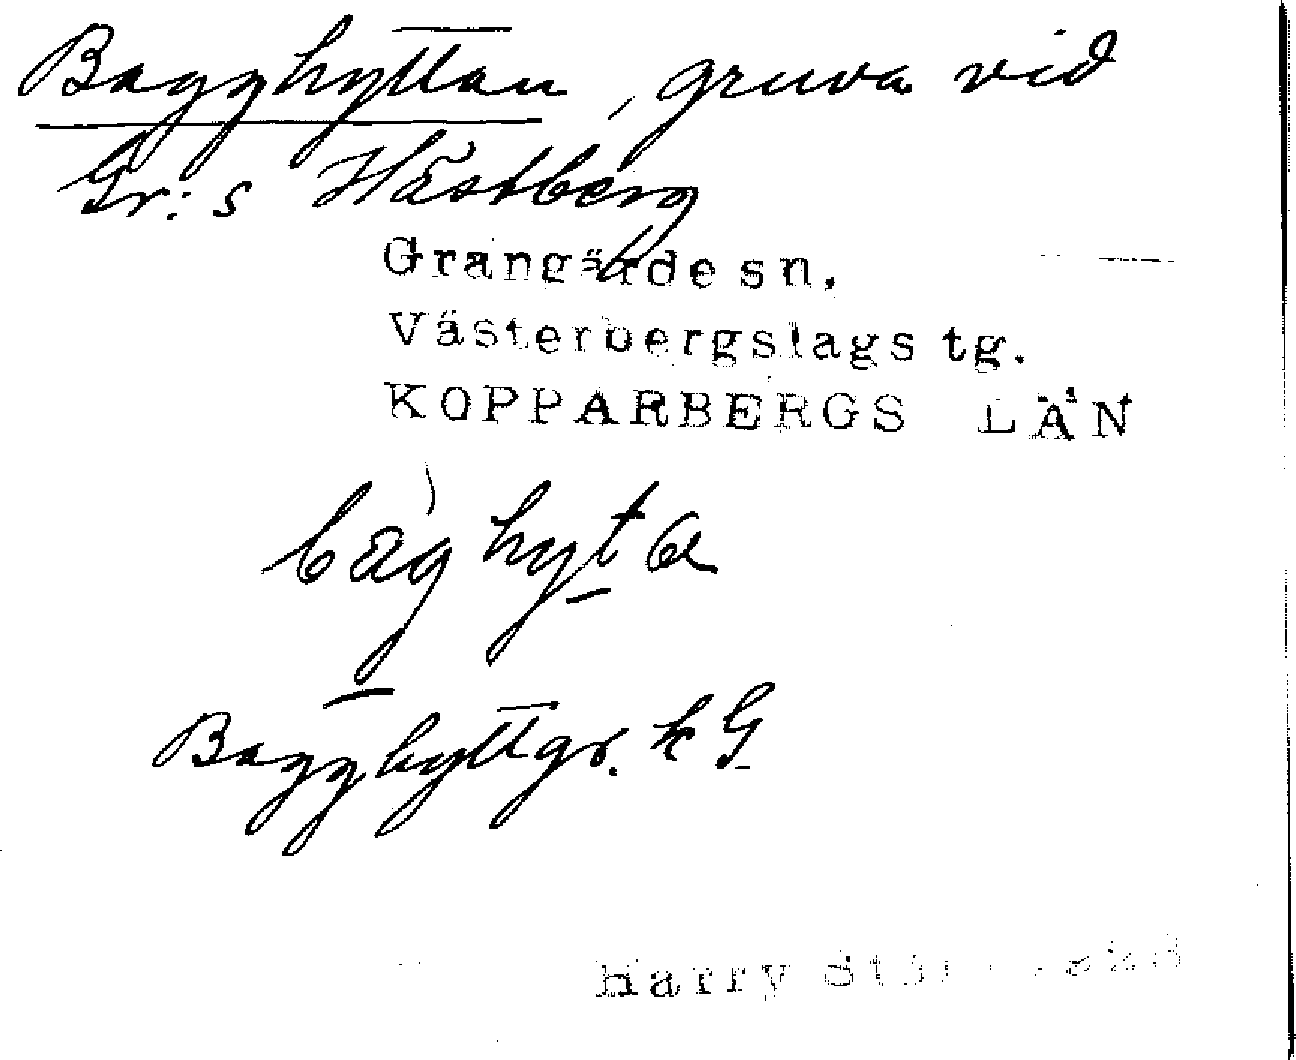 Bagghyttan, gruva vid
Gr:s Hästberg
Grangärde sn.
Västerbergslags tg.
KOPPARBERGS LÄN
bàg hyta
Bagghyttgr. k G.
Harry